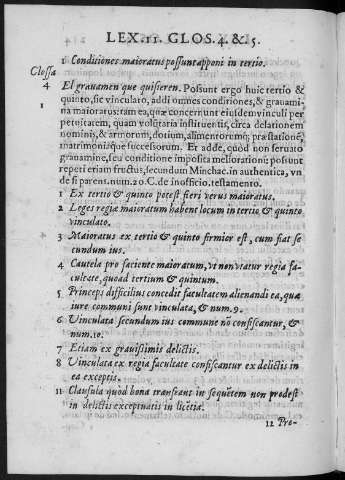 LEX. 11. GLOS. 4. & 5.
1 Conditiones maioratus possunt apponi in tertio.
Glossa
4
El grauamen que quisieren. Possunt ergo huic tertio &
1
quinto, sic vinculato, addi omnes conditiones, & grauami-
na maioratus: tam ea, quæ concernunt eiusdem vinculi per
petuitatem, quam volũtaria instituentis, circa delationem
nominis, & armorum, dotium, alimentorumq; præstationē,
matrimoniaque successorum. Et adde, quod non seruato
grauamine, seu conditione imposita meliorationi; possunt
repeti eriam fructus, secundum Minchac. in authentica, vn
de si parens. num. 20. C. de inofficio. testamento.
1 Ex tertio & quinto potest fieri verus maioratus.
2 Leges regiæ maioratum habent locum in tertio & quinto
vinculato.
3 Maioratus ex tertio & quinto firmior est, cum fiat se
cundum ius.
4 Cautela pro faciente maioratum, vt non vtatur regia fa-
cultate, quoad tertium & quintum.
5 Princeps difficilius concedit facultatem alienandi ea, quæ
iure communi sunt vinculata, & num. 9.
6 Vinculata secundum ius commune nõ confiscantur, &
num. 10.
7 Etiam ex grauissimis delictis.
8 Vinculata ex regia facultate confiscantur ex delictis in
ea exceptis.
11 Clausula quòd bona transeant in sequẽtem non prodest
in delictis exceptuatis in licẽtia.
12 Pro-